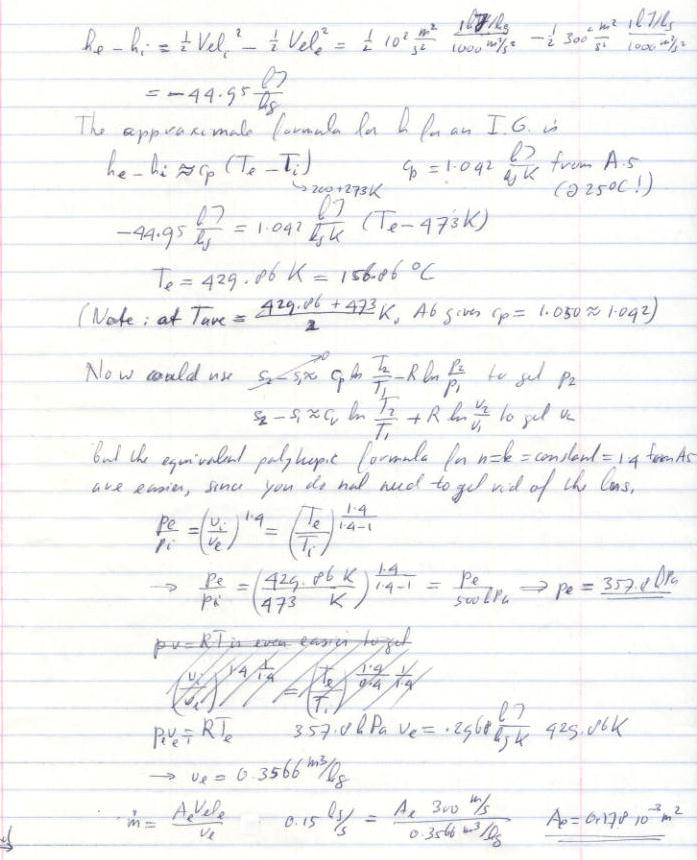 he - hi = 1/2 Vel_i² - 1/2 Vel_e² = 1/2 10² m²/s² 1kJ/kg / 1000 m²/s² - 1/2 300² m²/s² 1kJ/kg / 1000 m²/s²
= -44.95 kJ/kg
The approximate formula for h for an I.G. is
he - hi ≈ cp (Te - Ti) cp = 1.042 kJ/kg K from A.5
↳ 200+273K (@ 25°C!)
-44.95 kJ/kg = 1.042 kJ/kg K (Te - 473K)
Te = 429.86 K = 156.86 °C
(Note: at Tave = (429.86 + 473)/2 K, A6 gives cp = 1.050 ≈ 1.042)
Now could use s2 - s1 ≈ cp ln T2/T1 - R ln p2/p1 to get p2
s2 - s1 ≈ cv ln T2/T1 + R ln v2/v1 to get v2
but the equivalent polytropic formula for n=k=constant=1.4 from A5
are easier, since you do not need to get rid of the lns,
pe/pi = (vi/ve)^1.4 = (Te/Ti)^(1.4/(1.4-1))
→ pe/pi = (429.86 K / 473 K)^(1.4/(1.4-1)) = pe/500kPa ⇒ pe = 357.8 kPa
pv=RT is even easier to get
(vi/ve)^(1.4 1/1.4) = (Te/Ti)^(1.4/0.4 1/1.4)
peve = RTe 357.8 kPa ve = .2968 kJ/kg K 429.86K
→ ve = 0.3566 m³/kg
ṁ = Ae Vele / ve 0.15 kg/s = Ae 300 m/s / 0.3566 m³/kg Ae = 0.178 10⁻³ m²